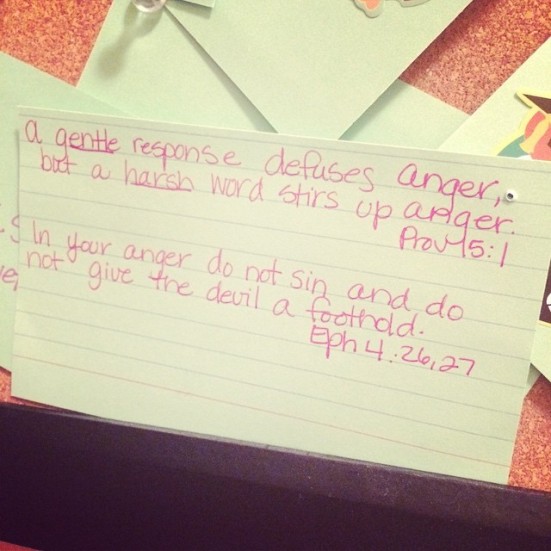 a gentle response defuses anger,
but a harsh word stirs up anger.
Prov 15:1
In your anger do not sin and do
not give the devil a foothold.
Eph 4:26,27